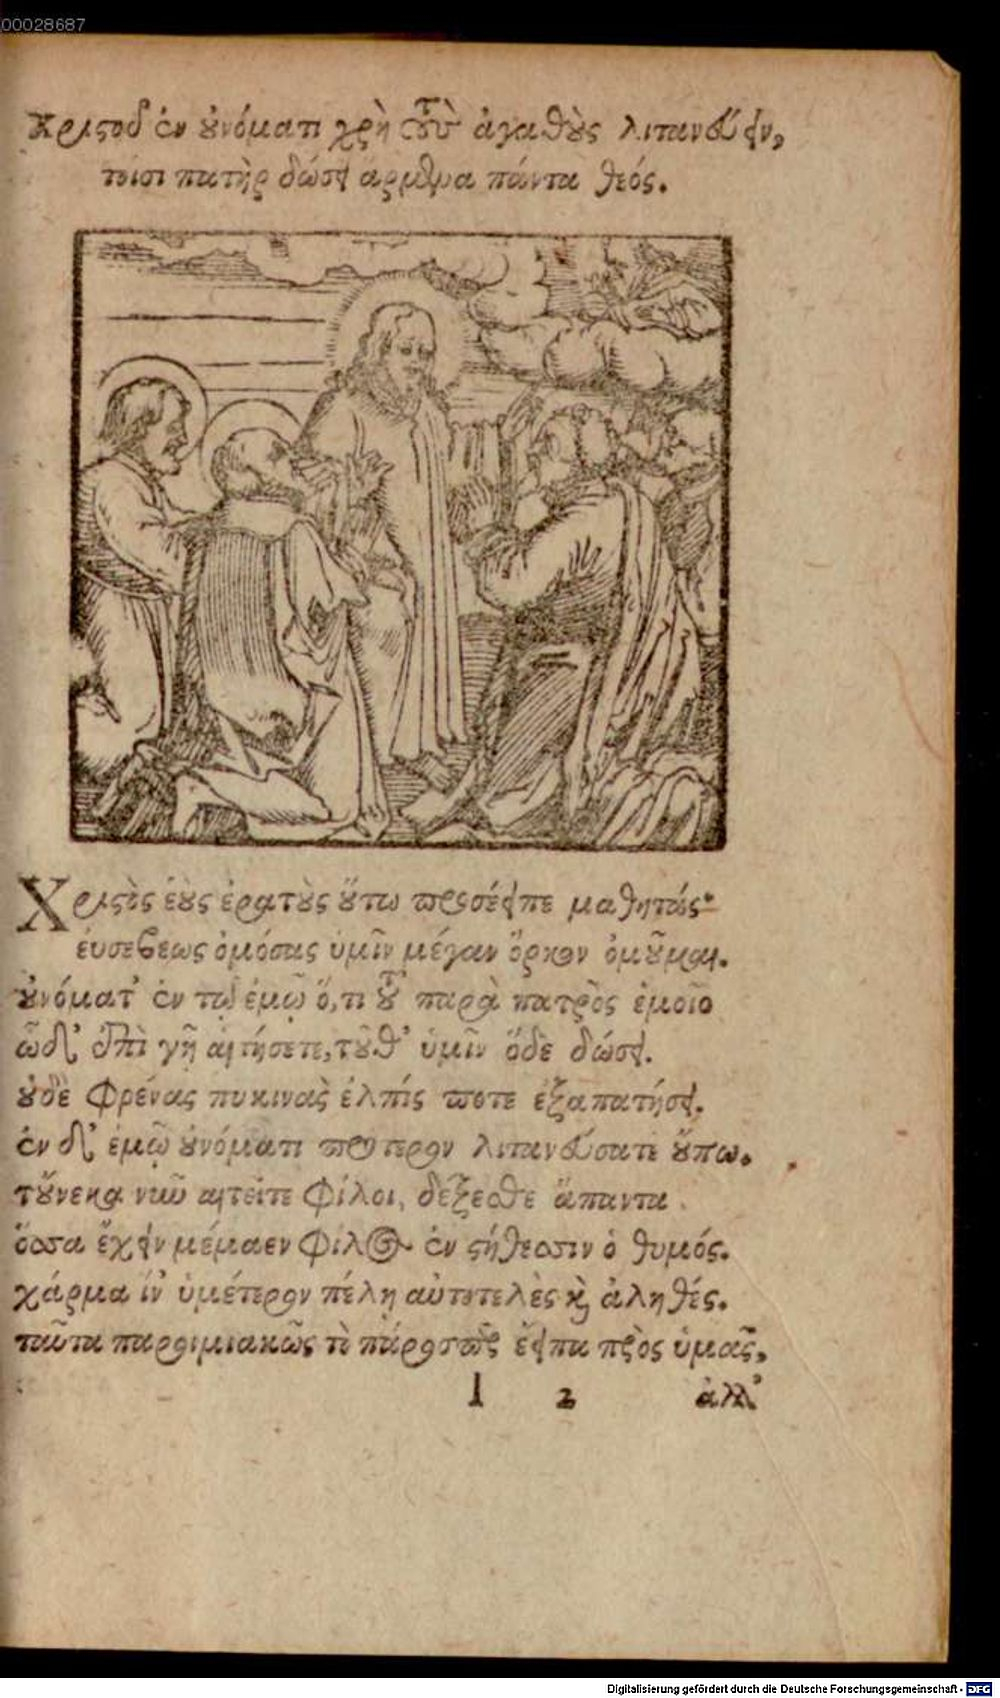 00028687
Χριστοῦ ἐν οὐνόματι χρὴ τοὺς ἀγαθοὺς λιτανεύειν,
τοῖσι πατὴρ δώσει ἄρμενα πάντα θεός.
Χριστὸς ἑοὺς ἐρατοὺς οὕτω προσέειπε μαθητάς·
εὐσεβέως ὀμόσας ὑμῖν μέγαν ὅρκον ὀμοῦμαι.
οὐνόματ' ἐν τῷ ἐμῷ ὅ,τι παρὰ πατρὸς ἐμοῖο
ὧδ' ἐπὶ γῇ αἰτήσετε, τοῦθ' ὑμῖν ὅδε δώσει.
οὐδὲ φρένας πυκινὰς ἐλπίς ποτε ἐξαπατήσει.
ἐν δ' ἐμῷ οὐνόματι πρότερον λιτανεύσατε οὔπω.
τοὔνεκα νῦν αἰτεῖτε φίλοι, δέξεσθε ἅπαντα
ὅσσα ἔχειν μέμαεν φίλος ἐν στήθεσσιν ὁ θυμός.
χάρμα ἵν' ὑμέτερον πέλῃ αὐτοτελὲς καὶ ἀληθές.
ταῦτα παροιμιακῶς τὸ πάρος πῶς ἔειπα πρὸς ὑμᾶς,
l 2 ἀλλ'
Digitalisierung gefördert durch die Deutsche Forschungsgemeinschaft - DFG